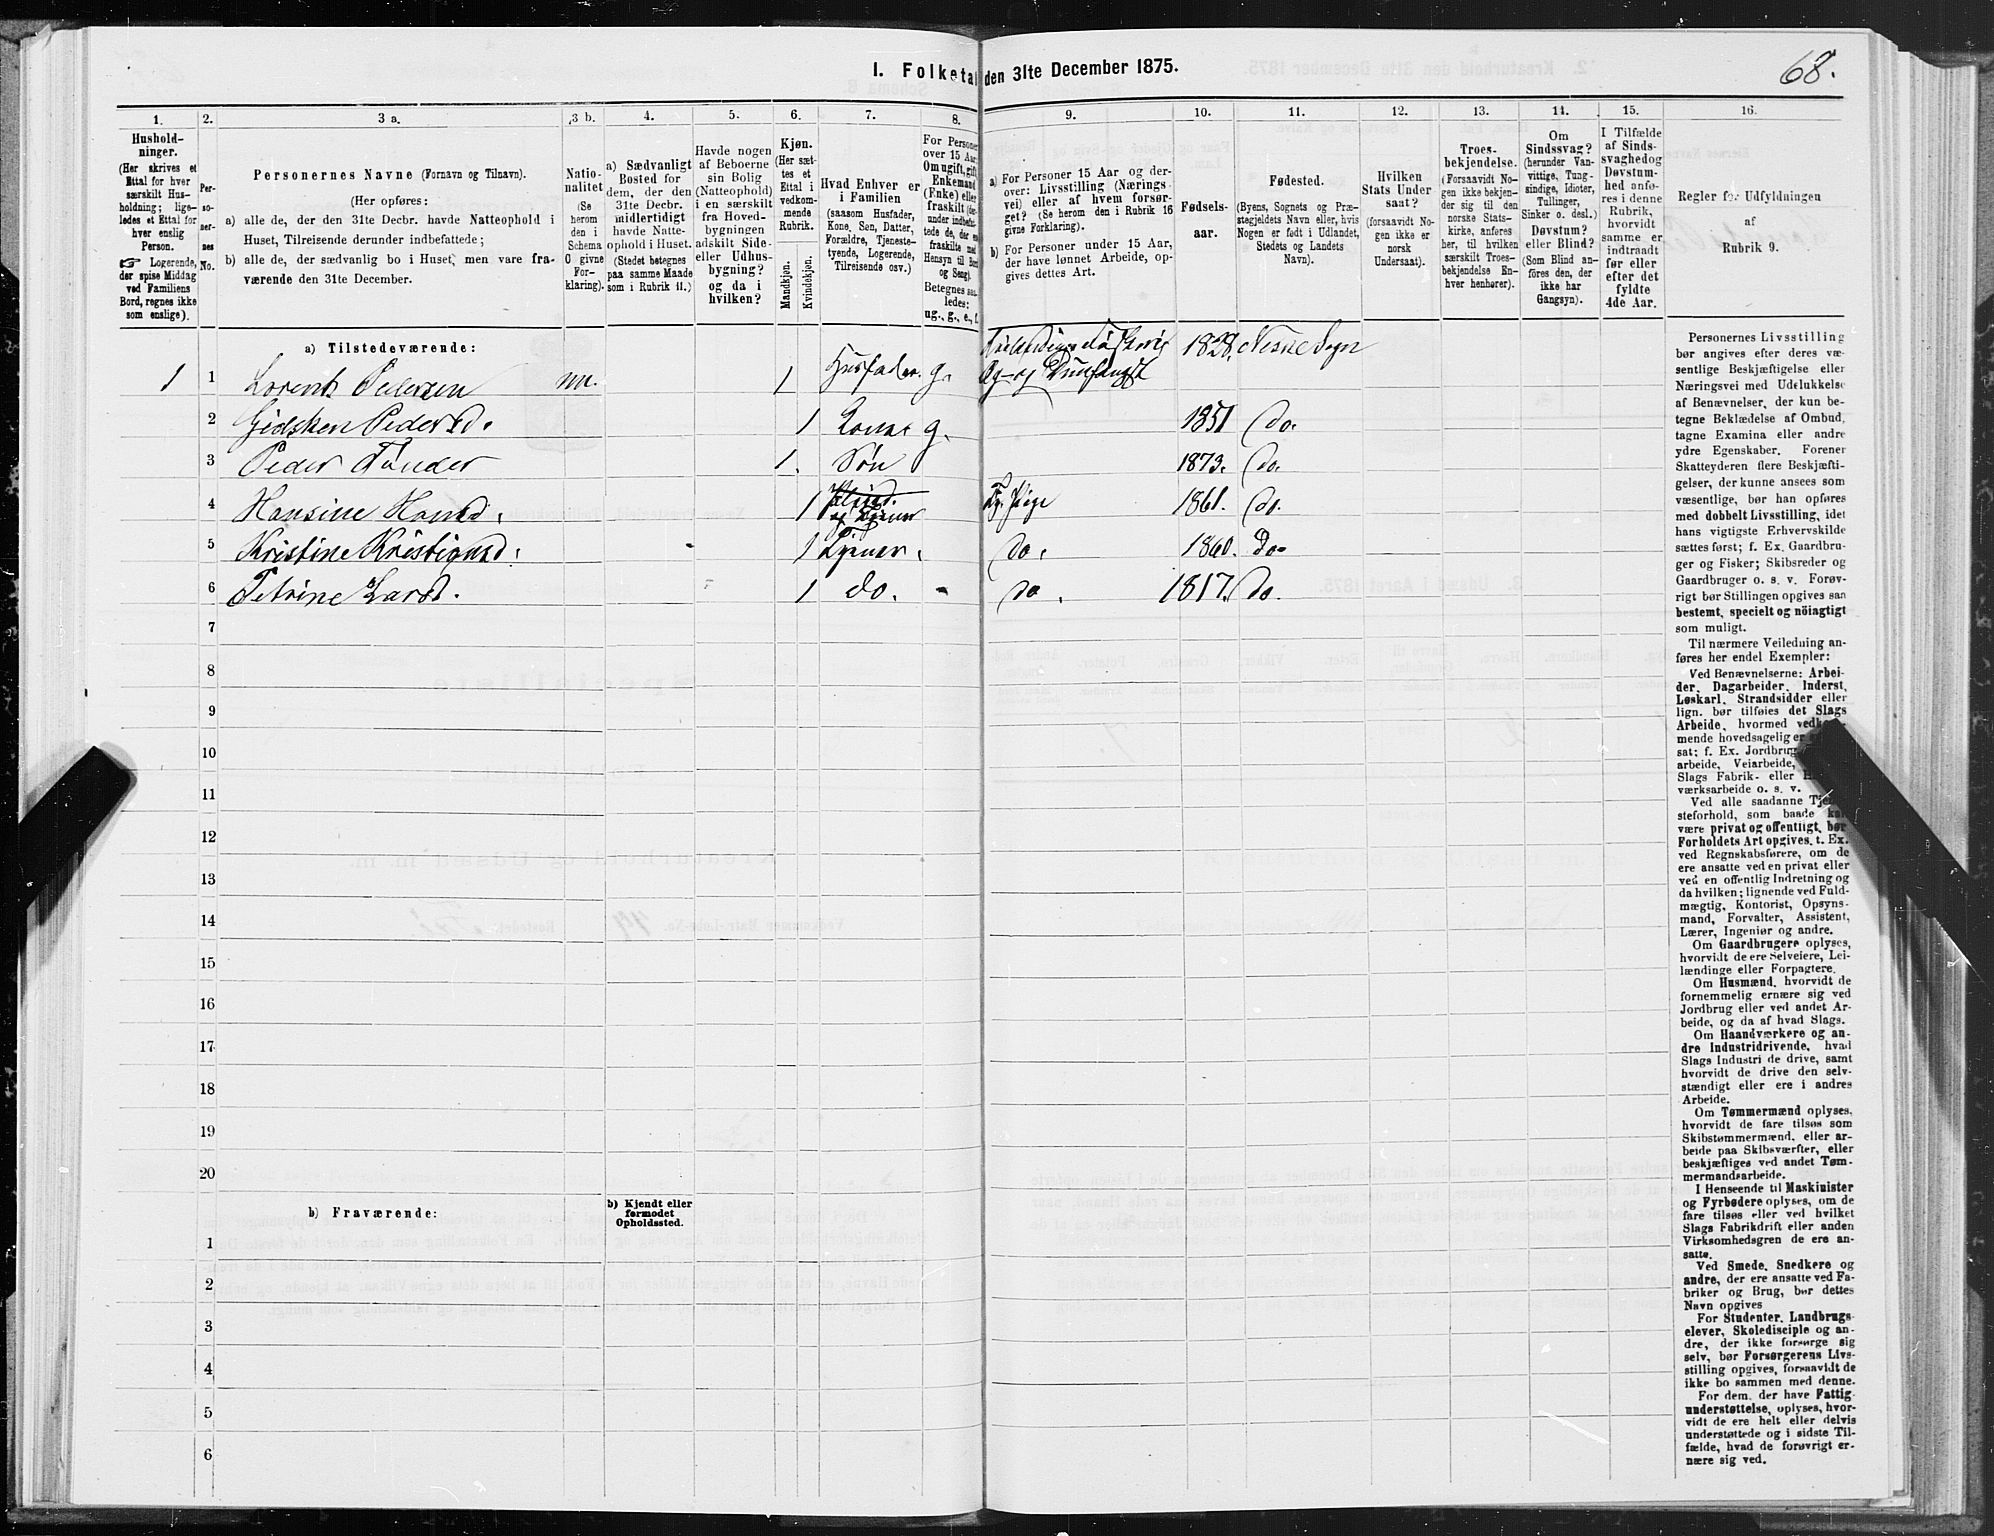 1. Folketal den 31te December 1875.
68.
1.
Hushold-
ninger.
(Her skrives et
Ettal for hver
særskilt Hus-
holdning; lige-
ledes et Ettal for
hver enslig
Person.
☞ Logerende,
der spise Middag
ved Familiens
Bord, regnes ikke
som enslige).
2.
Per-
so-
ner-
nes
No.
3 a.
Personernes Navne (Fornavn og Tilnavn).
(Her opføres:
a) alle de, der den 31te Decbr. havde Natteophold i
Huset, Tilreisende derunder indbefattede;
b) alle de, der sædvanlig bo i Huset, men vare fra-
værende den 31te December.
3 b.
Natio-
nalitet
(Se
herom
den i
Schema
O givne
For-
klaring).
4.
a) Sædvanligt
Bosted for
dem, der den
31te Decbr.
midlertidigt
havde Natte-
ophold i Huset.
(Stedet betegnes
paa samme Maade
som i Rubrik 11.)
5.
Havde nogen
af Beboerne
sin Bolig
(Natteophold)
i en særskilt
fra Hoved-
bygningen
adskilt Side-
eller Udhus-
bygning?
og da i
hvilken?
6.
Kjøn.
(Her sæt-
tes et
Ettal i
vedkom-
mende
Rubrik.
Mandkjøn.
Kvindekjøn.
7.
Hvad Enhver er
i Familien
(saasom Husfader,
Kone, Søn, Datter,
Forældre, Tjeneste-
tyende, Logerende,
Tilreisende osv.)
8.
For Personer
over 15 Aar:
Om ugift, gift,
Enkemand
(Enke) eller
fraskilt
ledes:
ug., g., e., f.
9.
a) For Personer 15 Aar og der-
over: Livsstilling (Nærings-
vei) eller af hvem forsør-
get? (Se herom den i Rubrik 16
givne Forklaring).
b) For Personer under 15 Aar,
der have lønnet Arbeide, op-
gives dettes Art.
10.
Fødsels-
aar.
11.
Fødested.
(Byens, Sognets og Præ-
stegjeldets Navn eller, hvis
Nogen er født i Udlandet,
Stedets og Landets
Navn).
12.
Hvilken
Stats Under
saat?
(forsaavidt No-
gen ikke er
norsk
Undersaat).
13.
Troes-
bekjendelse.
(Forsaavidt No-
gen ikke bekjen-
der sig til den
norske Stats-
kirke, anføres
her, til hvilken
særskilt Troes-
bekjendelse En-
hver henhører).
14.
Om
Sindssvag?
(herunder Van-
vittige, Tung-
sindige, Idioter,
Tullinger,
Sinker o. desl.)
Døvstum?
eller Blind?
(Som Blind an-
føres den, der
ikke har
Gangsyn).
15.
I Tilfælde
af Sinds-
svaghedog
Døvstum-
hed anfø-
res i denne
Rubrik,
hvorvidt
samme er
indtraadt
før eller
efter det
fyldte
4de Aar.
16.
Regler for Udfyldningen
af
Rubrik 9.
a) Tilstedeværende:
1 1 Lorents Pedersen nn. 1 Husfader. g. 1828. Neskne Sogn
2 Gidsken Pedersd. 1 Kone g. 1851 do.
3 Peder Tünder 1. Søn 1873. do.
4 Hansine Hansd. 1 Tj. Pige 1861. do.
5 Kristine Kristiansd: 1 Tjener. do. 1860. Do
6 Petrine Larsd. 1 do. do. 1817. do.
7
8
9
10
11
12
13
14
15
16
17
18
19
20
b) Fraværende:
b) Kjendt eller
formodet
Opholdssted.
1
2
3
4
5
6
Personernes Livsstilling
bør angives efter deres væ-
sentlige Beskjæftigelse eller
Næringsvei med Udelukkelse
af Benævnelser, der kun be-
tegne Beklædelse af Ombud,
tagne Examina eller andre
ydre Egenskaber. Forener
Skatteyderen flere Beskjæfti-
gelser, der kunne ansees som
væsentlige, bør han opføres
med dobbelt Livsstilling, idet
hans vigtigste Erhvervskilde
sættes først; f. Ex. Gaardbru-
ger og Fisker; Skibsreder og
Gaardbruger o. s. v. Forøv-
rigt bør Stillingen opgives saa
bestemt, specielt og nöiagtigt
som muligt.
Til nærmere Veiledning an-
føres her endel Exempler:
Ved Benævnelserne: Arbei-
der, Dagarbeider, Inderst,
Løskarl, Strandsidder eller
lign. bør tilføies det Slags
Arbeide, hvormed vedkom-
mende hovedsagelig er
sat; f. Ex. Jordbrug
arbeide, Veiarbeide,
Slags Fabrik- eller
værksarbeide o. s. v.
Ved alle saadanne Tje-
steforhold, som baade kan
være privat og offentligt, bør
Forholdets Art opgives, t. Ex.
ved Regnskabsførere, om de
ere ansatte ved en privat eller
ved en offentlig Indretning og
da hvilken; lignende ved Fuld-
mægtig, Kontorist, Opsyns-
mand, Forvalter, Assistent,
Lærer, Ingeniør og andre.
Om Gaardbrugere oplyses,
hvorvidt de ere Selveiere, Lei-
lændinge eller Forpagtere.
Om Husmænd, hvorvidt de
fornemmelig ernære sig ved
Jordbrug eller ved andet Ar-
beide, og da af hvad Slags.
Om Haandværkere og an-
dre Industridrivende, hvad
Slags Industri de drive, samt
hvorvidt de drive den selv-
stændigt eller ere i andres
Arbeide.
Om Tømmermænd oplyses,
hvorvidt de fare tilsøs som
Skibstømmermænd, eller ar-
beide paa Skibsværfter, eller
beskjæftiges ved andet Tøm-
mermandsarbeide.
I Henseende til Maskinister
og Fyrbødere oplyses, om de
fare tilsøs eller ved hvilket
Slags Fabrikdrift eller anden
Virksomhedsgren de ere an-
satte.
Ved Smede, Snedkere og
andre, der ere ansatte ved Fa-
briker og Brug, bør dettes
Navn opgives
For Studenter, Landbrugs-
elever, Skoledisciple og an-
dre, der ikke forsørge sig
selv, bør Forsørgerens Livs-
stilling opgives, forsaavidt de
ikke bo sammen med denne.
For dem, der have Fattig-
understøttelse, oplyses, hvor-
vidt de ere helt eller delvis
understøttede og i sidste Til-
fælde, hvad de forøvrigt er-
nære sig ved.